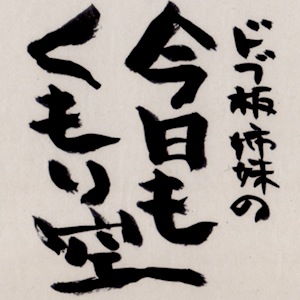 ドブ板姉妹の
今日も
くもり空